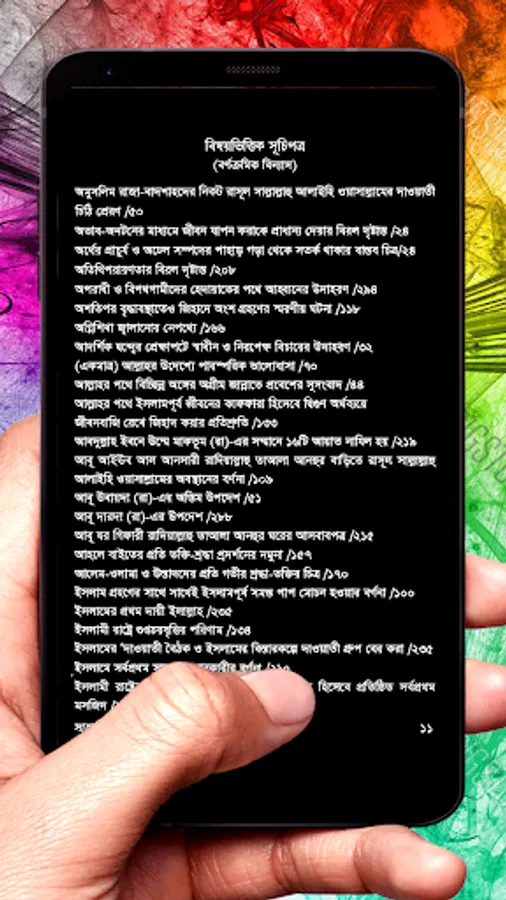 বিষয়ভিত্তিক সূচিপত্র
(বর্ণক্রমিক বিন্যাস)
অমুসলিম রাজা-বাদশাহদের নিকট রাসূল সাল্লাল্লাহু আলাইহি ওয়াসাল্লামের দাওয়াতী
চিঠি প্রেরণ /৫৩
অভাব-অনটনের মাধ্যমে জীবন যাপন করাকে প্রাধান্য দেয়ার বিরল দৃষ্টান্ত /২৪
অর্থের প্রাচুর্য ও অঢেল সম্পদের পাহাড় গড়া থেকে সতর্ক থাকার বাস্তব চিত্র/২৪
অতিথিপরায়ণতার বিরল দৃষ্টান্ত /২০৮
অপরাধী ও বিপথগামীদের হেদায়াতের পথে আহ্বানের উদাহরণ /২৯৪
অশতিপর বৃদ্ধাবস্থাতেও জিহাদে অংশ গ্রহণের স্মরণীয় ঘটনা /১১৮
অগ্নিশিখা জ্বালানোর নেপথ্যে /১৬৬
আদর্শিক দ্বন্দ্বের প্রেক্ষাপটে স্বাধীন ও নিরপেক্ষ বিচারের উদাহরণ /৩২
(একমাত্র) আল্লাহর উদ্দেশ্যে পারস্পরিক ভালোবাসা /৭০
আল্লাহর পথে বিচ্ছিন্ন অঙ্গের অগ্রীম জান্নাতে প্রবেশের সুসংবাদ /৪৪
আল্লাহর পথে ইসলামপূর্ব জীবনের কাফফারা হিসেবে দ্বিগুণ অর্থব্যয়ে
জীবনবাজি রেখে জিহাদ করার প্রতিশ্রুতি /১৩৩
আবদুল্লাহ ইবনে উম্মে মাকতূম (রা)-এর সম্মানে ১৬টি আয়াত নাযিল হয় /২১৯
আবূ আইউব আল আনসারী রাদিয়াল্লাহু তাআলা আনহুর বাড়িতে রাসূল সাল্লাল্লাহু
আলাইহি ওয়াসাল্লামের অবস্থানের বর্ণনা /১০৯
আবূ উবায়দা (রা)-এর অন্তিম উপদেশ /৫১
আবূ দারদা (রা)-এর উপদেশ /২৮৮
আবূ যর গিফারী রাদিয়াল্লাহু তাআলা আনহুর ঘরের আসবাবপত্র /২১৫
আহলে বাইতের প্রতি ভক্তি-শ্রদ্ধা প্রদর্শনের নমুনা /১৫৭
আলেম-ওলামা ও উস্তাদদের প্রতি গভীর শ্রদ্ধা-ভক্তির চিত্র /১৭০
ইসলাম গ্রহণের সাথে সাথেই ইসলামপূর্ব সমস্ত পাপ মোচন হওয়ার বর্ণনা /১০০
ইসলামের প্রথম দায়ী ইলাল্লাহ /২৩৫
ইসলামী রাষ্ট্রে গুপ্তচরবৃত্তির পরিণাম /১৩৪
ইসলামের 'দাওয়াতী বৈঠক ও ইসলামের বিস্তারকল্পে দাওয়াতী গ্রুপ বের করা /২৩৫
ইসলামে সর্বপ্রথম
ইসলামী রাষ্ট্রে হিসেবে প্রতিষ্ঠিত সর্বপ্রথম
মসজিদ
১১